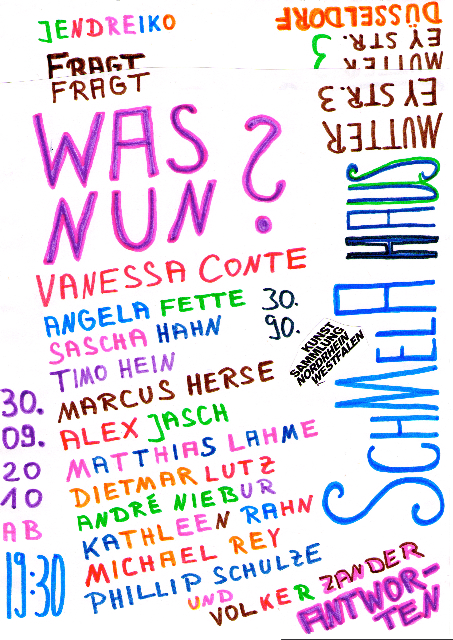 JENDREIKO
FRAGT
FRAGT
WAS
NUN?
VANESSA CONTE
ANGELA FETTE
SASCHA HAHN
TIMO HEIN
MARCUS HERSE
ALEX JASCH
MATTHIAS LAHME
DIETMAR LUTZ
ANDRÉ NIEBUR
KATHLEEN RAHN
MICHAEL REY
PHILLIP SCHULZE
UND
VOLKER ZANDER
ANTWOR-
TEN
30.
90.
KUNST
SAMMLUNG
NORDRHEIN
WESTFALEN
30.
09.
20
10
AB
19:30
SCHMELA HAUS
MUTTER
EY STR.3
MUTTER
EY STR.
3
DÜSSELDORF